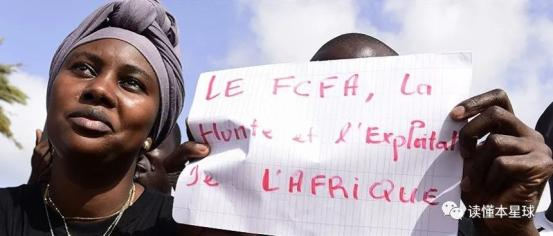 LE FCFA, La
Hunte et l'Exploitat
de L'AFRIQUE
读懂本星球